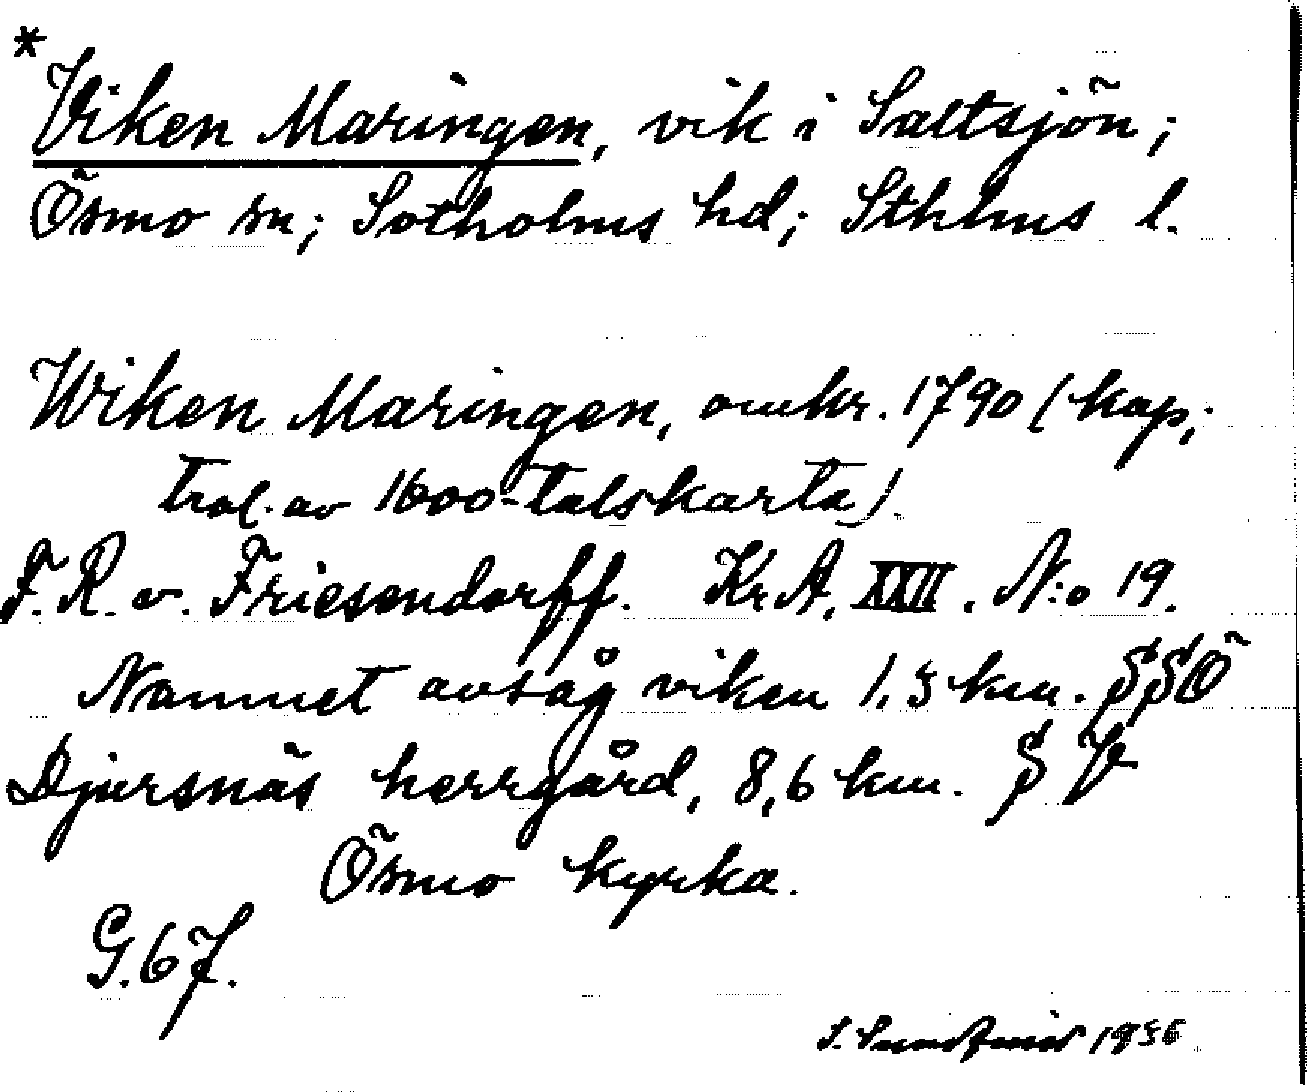 *
Viken Maringen, vik i Saltsjön;
Ösmo sn; Sotholms hd; Sthlms l.
Wiken Maringen, omkr. 1790 (kop;
trol. av 1600-talskarta).
F. R. v. Friesendorff. Kr.A. XXII. N:o 19.
Namnet avsåg viken 1,5 km. SSÖ
Djursnäs herrgård, 8,6 km. SV
Ösmo kyrka.
G. 67.
S. 1936